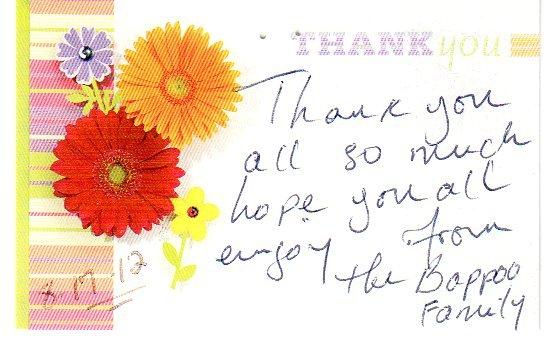 THANK you
Thank you
all so much
hope you all
enjoy from
the Bappoo
Family
8-17-12